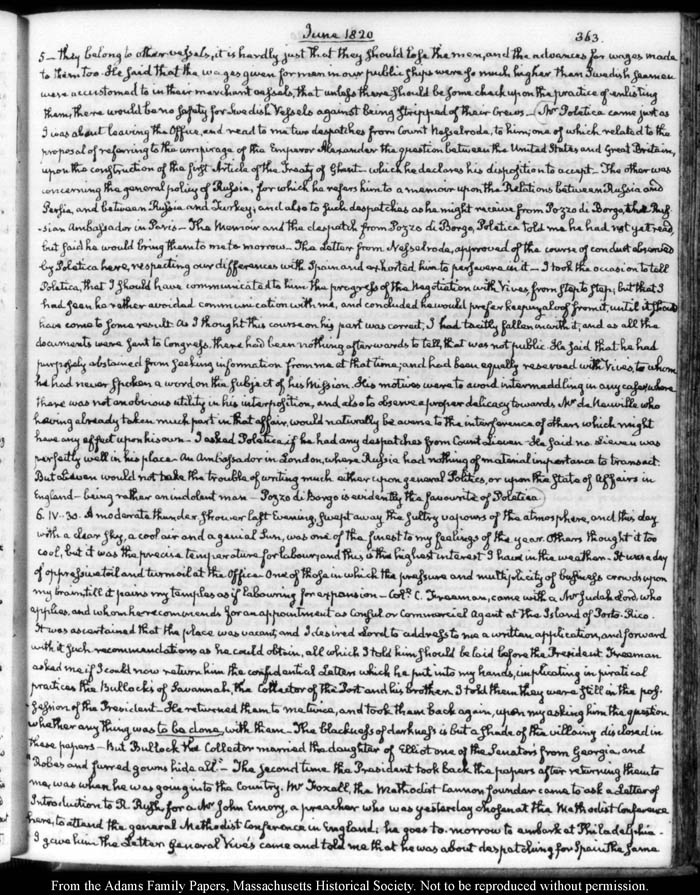 June 1820
363.
5 – they belong to other vessels, it is hardly just that they should lose the men, and the advances for wages made
to them too. He said that the wages given for men in our public ships were so much higher than Swedish seamen
were accustomed to in their merchant vessels, that unless there should be some check upon the practice of enlisting
them, there would be no safety for Swedish Vessels against being stripped of their Crews – Mr Poletica came just as
I was about leaving the Office, and read to me two despatches from Count Nesselrode, to him; one of which related to the
proposal of referring to the umpirage of the Emperor Alexander the question between the United States and Great Britain,
upon the construction of the first Article of the Treaty of Ghent – which he declares his disposition to accept – The other was
concerning the general policy of Russia, for which he refers him to a memoir upon the Relations between Russia and
Persia, and between Russia and Turkey; and also to such despatches as he might receive from Pozzo di Borgo, the Rus-
-sian Ambassador in Paris – The Memoir and the despatch from Pozzo di Borgo, Poletica told me he had not yet read,
but said he would bring them to me to-morrow – The Letter from Nesselrode, approved of the course of conduct observed
by Poletica here, respecting our differences with Spain and exhorted him to persevere in it – I took the occasion to tell
Poletica, that I should have communicated to him the progress of the Negotiation with Vives, from step to step; but that I
had seen he rather avoided communication with me, and concluded he would prefer keeping aloof from it, until it should
have come to some result. As I thought this course on his part was correct, I had tacitly fallen in with it, and as all the
documents were sent to Congress, there had been nothing afterwards to tell, that was not public. He said that he had
purposely abstained from seeking information from me at that time; and had been equally reserved with Vives, to whom
he had never spoken a word on the subject of his Mission. His motives were to avoid intermeddling in any case, where
there was not an obvious utility in his interposition, and also to observe a proper delicacy towards Mr de Neuville who
having already taken much part in that affair, would naturally be averse to the interference of others which might
have any effect upon his own – I asked Poletica if he had any despatches from Count Lieven – He said no. Lieven was
perfectly well in his place – An Ambassador in London, where Russia had nothing of material importance to transact.
But Lieven would not take the trouble of writing much either upon general Politics, or upon the State of Affairs in
England – being rather an indolent man – Pozzo di Borgo is evidently the favourite of Poletica.
6. IV:30. A moderate thunder shower last Evening, swept away the sultry vapours of the atmosphere, and this day
with a clear sky, a cool air and a genial Sun, was one of the finest to my feelings of the year. Others thought it too
cool, but it was the precise temperature for labour; and this is the highest interest I have in the weather – It was a day
of oppressive toil and turmoil at the Office – One of those in which the pressure and multiplicity of business crowds upon
my brain till it pains my temples as if labouring for expansion – Coll. C. Freeman, came with a Mr Judah Lord, who
applies, and whom he recommends for an appointment as Consul or Commercial Agent at the Island of Porto-Rico.
It was ascertained that the place was vacant, and I desired Lord to address to me a written application, and forward
with it such recommendations as he could obtain, all which I told him should be laid before the President Freeman
asked me if I could now return him the confidential Letters which he put into my hands, implicating in piratical
practices the Bullock's of Savannah, the Collector of the Port and his brother. I told them they were still in the pos-
session of the President – He returned them to me twice, and took them back again, upon my asking him the question
whether any thing was to be done with them – The blackness of darkness is but a shade of the villainy disclosed in
these papers – But Bullock the Collector married the daughter of Elliot one of the Senators from Georgia, and
"Robes and furred gowns hide all." – The second time the President took back the papers after returning them to
me, was when he was going into the Country. Mr Foxall, the Methodist Cannon founder came to ask a Letter of
Introduction to R. Rush, for a Mr John Emory, a preacher who was yesterday chosen at the Methodist Conference
here, to attend the general Methodist Conference in England; he goes to-morrow to embark at Philadelphia –
I gave him the Letter. General Vivés came and told me that he was about despatching for Spain the same
From the Adams Family Papers, Massachusetts Historical Society. Not to be reproduced without permission.